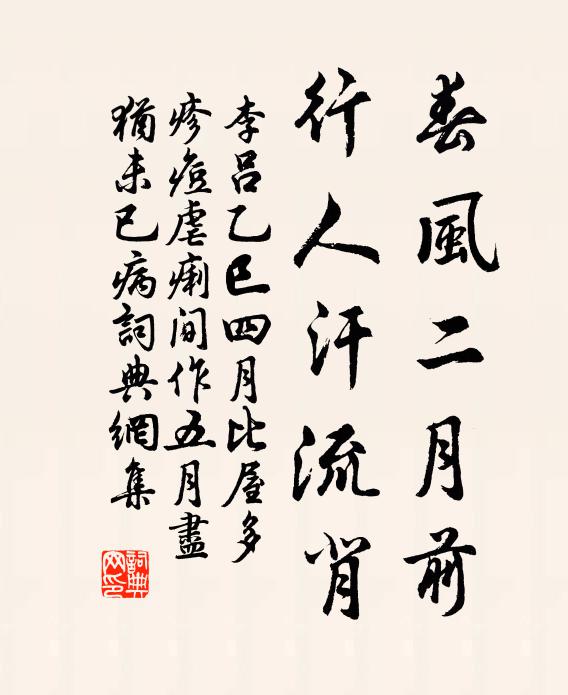 春風二月前
行人汗流背
李呂乙巳四月比屋多
疹痘虐痢間作五月盡
猶未已病詞典網集
詞典網印